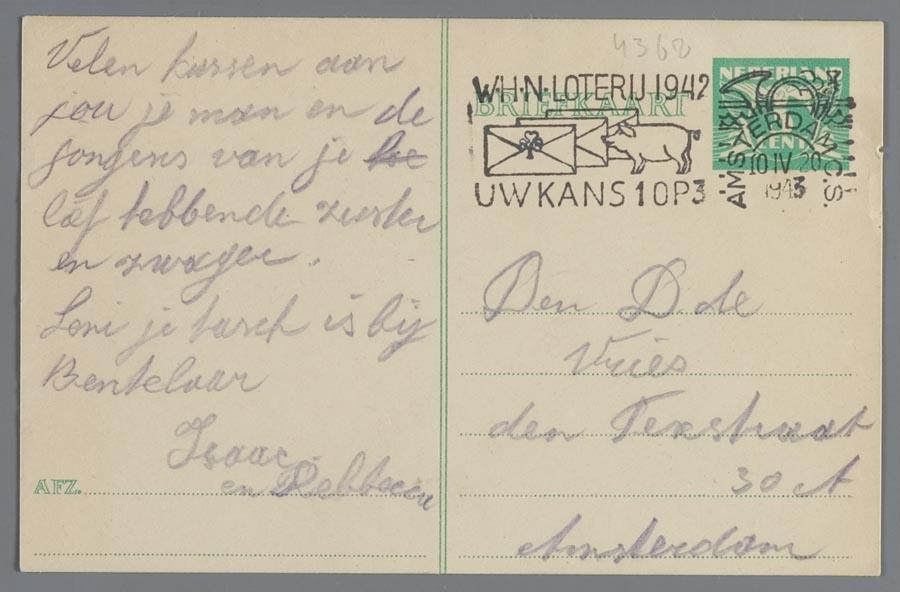 Velen kussen aan
jou je man en de
jongens van je
lief hebbende zuster
en zwager.
Leni je tasch is bij
Bentelaar
Isaac
en Rebbecca
AFZ.
4362
W.H.N. LOTERIJ 1942
UW KANS 1 OP 3
BRIEFKAART
NEDERLAND
CENT
AMSTERDAM C.S.
10 IV 20
1943
Den D de
Vries
den Texstraat
30 A
Amsterdam